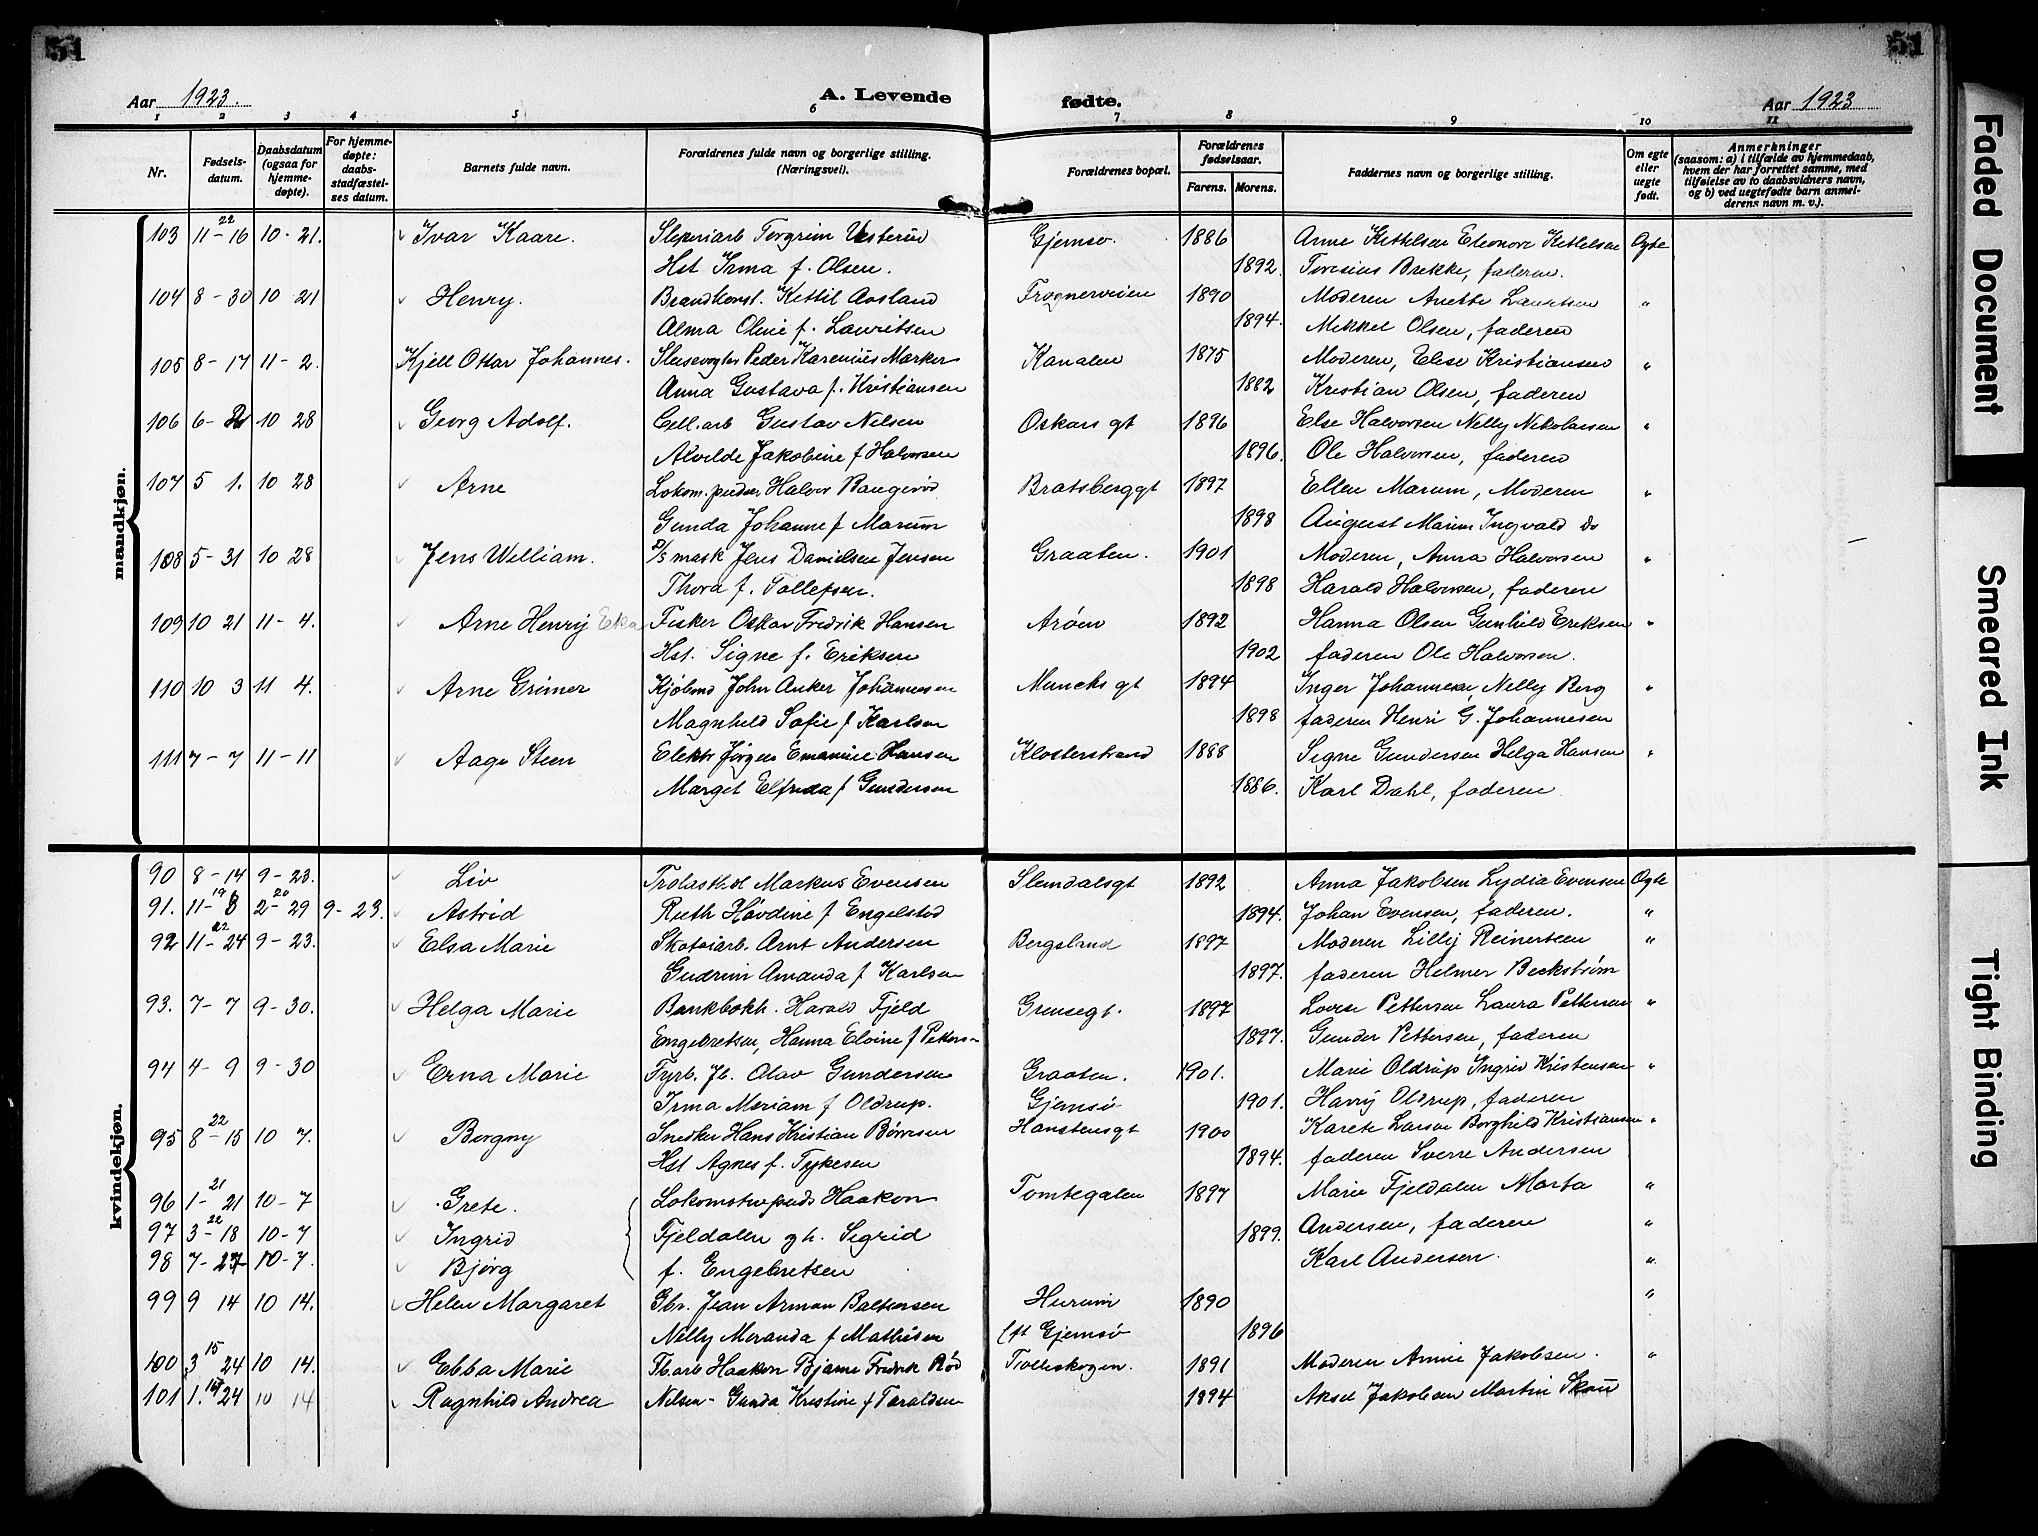 51
51
Aar 1923.
A. Levende
fødte.
Aar 1923
1 2 3 4 5 6 7 8 9 10 11
Nr.
Fødsels-
datum.
Daabsdatum
(ogsaa for
hjemme-
døpte).
For hjemme-
døpte:
daabs-
stadfæstel-
ses datum.
Barnets fulde navn.
Forældrenes fulde navn og borgerlige stilling.
(Næringsvei).
Forældrenes bopæl.
Forældrenes
fødselsaar.
Farens. Morens.
Faddernes navn og borgerlige stilling.
Om egte
eller
uegte
født.
Anmerkninger
(saasom: a) i tilfælde av hjemmedaab,
hvem der har forrettet samme, med
tilføielse av to daabsvidners navn,
og b) ved uegtefødte barn anmel-
derens navn m. v.).
mandkjøn.
103 11-16 22 10-21. Ivar Kaare. Sliperiarb Torgrim Vesterud Gjemsø. 1886 Anne Kittelsen Eleonore Kittelsen Egte
Hst Irma f. Olsen. 1892. Toresius Brekke, faderen.
104 8-30 10 21 Henry. Brandkonst. Kittil Aasland Frognerveien 1890 Moderen Anette Lauritsen "
Alma Oline f. Lauritsen 1894. Mikkel Olsen, faderen
105 8-17 11-2. Kjell Oskar Johannes. Slusevogter Peder Karenius Marker Kanalen 1875 Moderen, Elise Kristiansen "
Anna Gustava f. Kristiansen 1882 Kristian Olsen, faderen
106 6- 10 28 Georg Adolf. Cell. arb Gustav Nilsen Oskars gt 1896 Else Halvorsen Nelly Nikolaisen "
Alvilde Jakobine f Halvorsen 1896. Ole Halvorsen, faderen
107 5 1. 10 28 Arne Lokom. pudser Halvor Baugerød Bratsberggt 1897 Ellen Marum, Moderen "
Gunda Johanne f Marum 1898 August Marum Ingvald Do
108 5-31 10 28 Jens William. D/S mask Jens Danielsen Jensen Graaten. 1901 Moderen, Anna Halvorsen "
Thora f. Tollefsen. 1898 Harald Halvorsen, faderen
109 10 21 11-4. Arne Henry Fisker Oskar Fredrik Hansen Arøen 1892 Hanna Olsen Gunhild Eriksen "
Hst. Signe f. Eriksen 1902 faderen Ole Halvorsen.
110 10 3 11 4. Arne Greiner Kjøbmd John Anker Johannesen Muncks gt 1894 Inger Johannesen, Nelly Berg "
Magnhild Sofie f Karlsen 1898 faderen Henri G. Johannesen
111 7-7 11-11 Aage Steen Elektr Jørgen Emanuel Hansen Klosterstrand 1888 Signe Gundersen Helga Hansen "
Marget Elfrida f Gundersen 1886. Karl Dahl, faderen
kvindekjøn.
90 8-14 9-23. Liv Markus Evensen Slemdalsgt 1892 Anna Jakobsen Lydia Evensen Egte
91. 11-8 19 2-29 20 9-23. Astrid Ruth Høvdine f Engelstad 1894. Johan Evensen, faderen. "
92 11-24 22 9-23. Elsa Marie Skotøiarb. Arnt Andersen Bergsland 1897 Moderen Lilly Reinertsen "
Gudrun Amanda f Karlsen 1897. faderen Helmer Beckstrøm
93. 7-7 9-30. Helga Marie Bankbokh. Harald Fjeld Grensegt. 1897 Lovise Pettersen Laura Pettersen "
Engebretsen, Hanna Elvine f Peters- 1897. Gunder Pettersen, faderen
94 4-9 9-30 Erna Marie Fyrb. Jb. Olav Gundersen Graaten. 1901. Marie Oldrup Ingrid Kristensen "
Irma Meriam f Oldrup. Gjemsø 1901. Harry Oldrup, faderen
95 8-15 22 10 7. Borgny Snedker Hans Kristian Børresen Hansteensgt 1900 Karete Larsen Borghild Kristiansen "
Hst Agnes f. Tykesen 1894. faderen Sverre Andersen
96 1-21 21 10-7 Grete. Haakon Tomtegaten 1897 Marie Fjeldalen Marta "
97 3-18 22 10-7 Ingrid Fjeldalen gh. Sigrid 1899. Andersen, faderen "
98 7-27 10-7. Bjørg f. Engebretsen Karl Andersen. "
99 9 14 10 14. Helen Margaret Gbr. Jean Arman Baltersen Hurum 1890 "
Nelly Meranda f Mathisen Gjemsø 1896
100 3 24 15 10 14. Ebba Marie Fb. arb Haakon Bjarne Fredrik Rød Trolleskogen. 1891 Moderen Annie Jakobsen. "
101 1. 24 10 14 Ragnhild Andrea Nilsen- Gunda Kristine f Taraldsen 1894 Aksel Jakobsen Martin Skau
Faded Document
Smeared Ink
Tight Binding